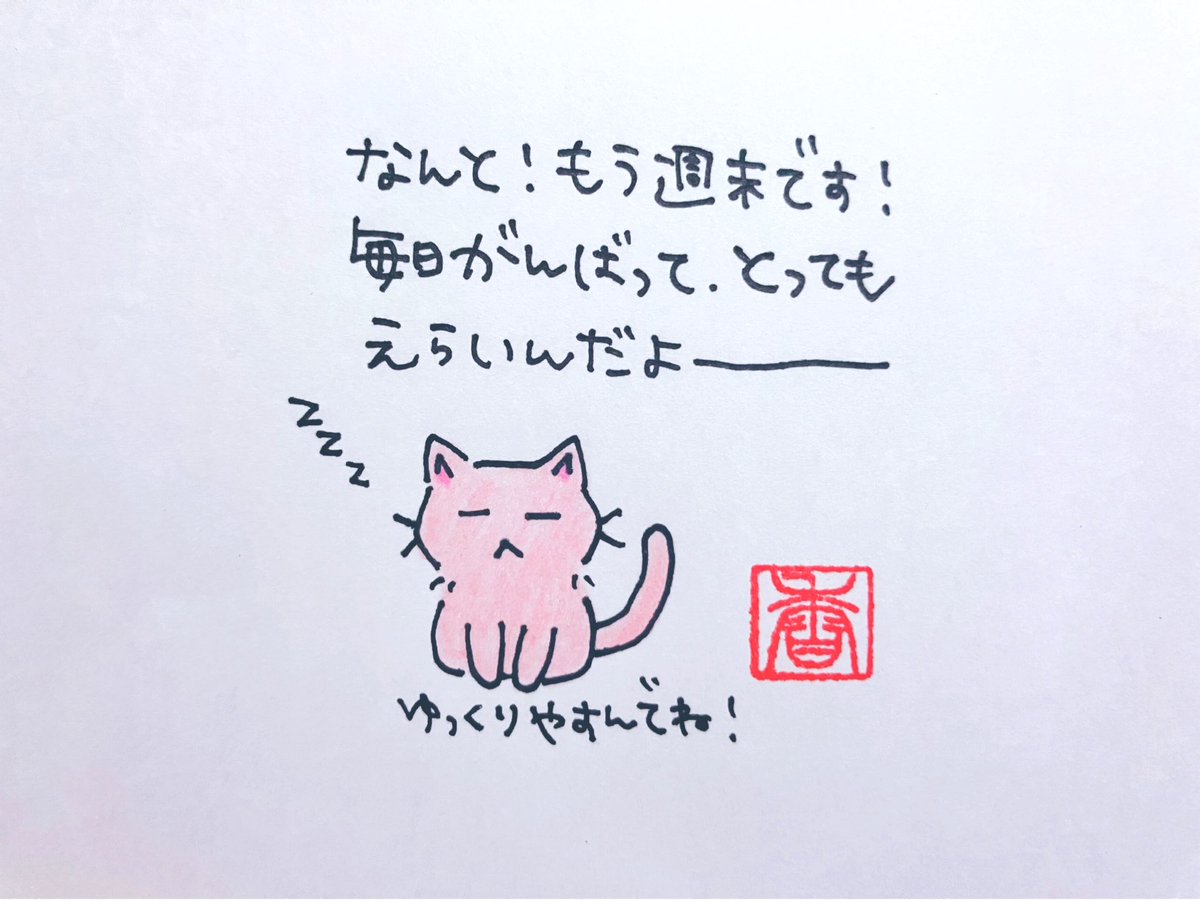 なんと!もう週末です!
毎日がんばって、とっても
えらいんだよー
zzz
ゆっくりやすんでね!
香